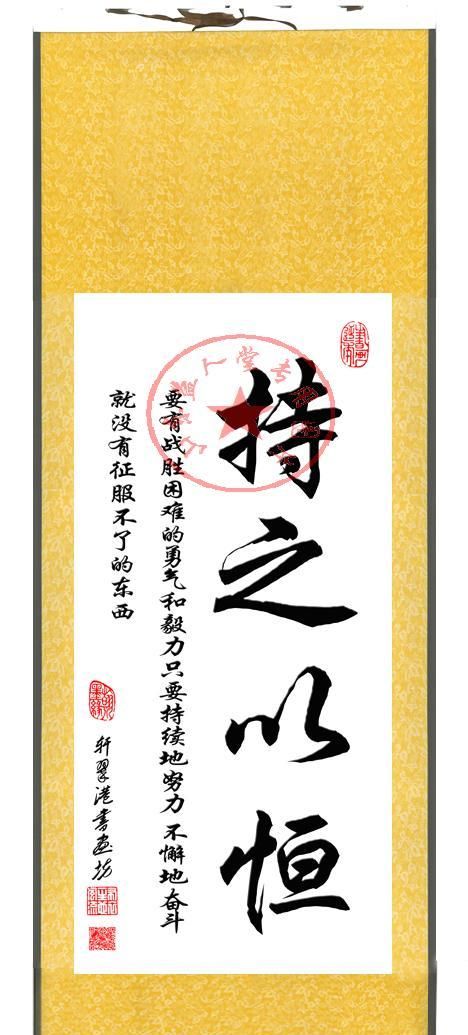 持之以恒
要有战胜困难的勇气和毅力只要持续地努力 不懈地奋斗
就没有征服不了的东西
轩翠港书画坊